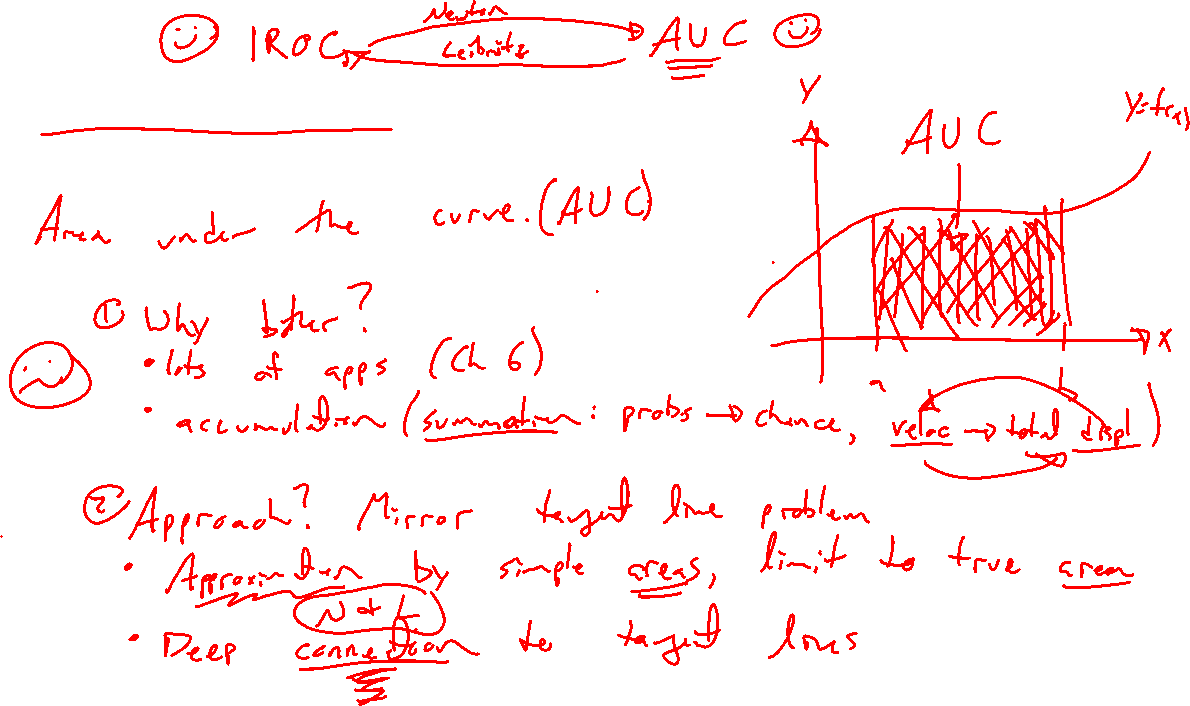 Newton
IROC AUC
Leibnitz
Y
AUC
y=f(x)
Area under the curve. (AUC)
① Why bther?
• lots of apps (Ch 6)
x
• accumulation (summation: probs → chance, veloc → total displ)
② Approach? Mirror tangent line problem
• Approximation by simple areas, limit to true area
N & L
• Deep connection to tangent lines